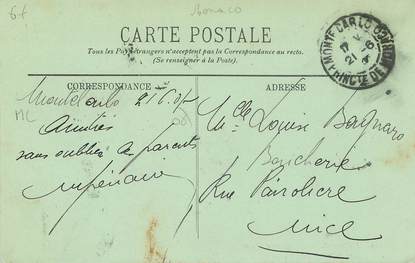 6f
Monaco
CARTE POSTALE
Tous les Pays étrangers n'acceptent pas la Correspondance au recto.
(Se renseigner à la Poste).
MONTE CARLO
21-6
PRINCTE DE
CORRESPONDANCE
ADRESSE
21.6.05
MC
Amitiés
sans oublier parents
Mlle Louise
Boucherie
Rue
Nice